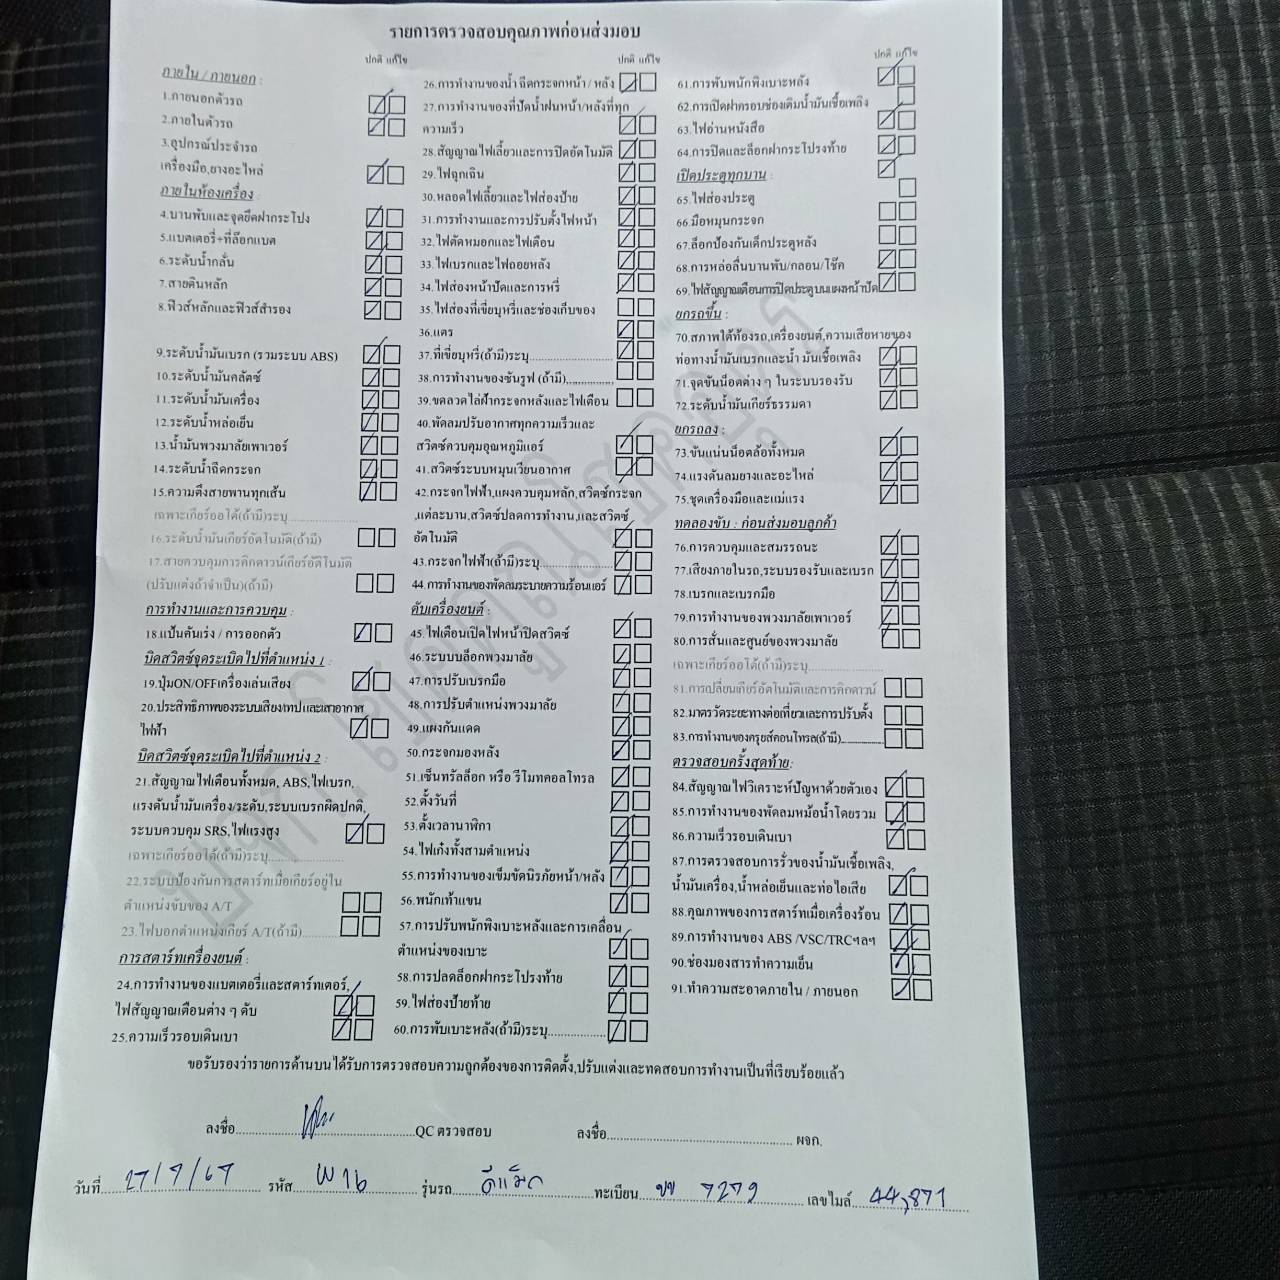 รายการตรวจสอบคุณภาพก่อนส่งมอบ
ปกติ แก้ไข
ภายใน / ภายนอก :
1.ภายนอกตัวรถ
2.ภายในตัวรถ
3.อุปกรณ์ประจำรถ
เครื่องมือ,ยางอะไหล่
ภายในห้องเครื่อง :
4.บานพับและจุดยึดฝากระโปง
5.แบตเตอรี่+ที่ล๊อกแบต
6.ระดับน้ำกลั่น
7.สายดินหลัก
8.ฟิวส์หลักและฟิวส์สำรอง
9.ระดับน้ำมันเบรก (รวมระบบ ABS)
10.ระดับน้ำมันคลัตช์
11.ระดับน้ำมันเครื่อง
12.ระดับน้ำหล่อเย็น
13.น้ำมันพวงมาลัยเพาเวอร์
14.ระดับน้ำฉีดกระจก
15.ความตึงสายพานทุกเส้น
เฉพาะเกียร์ออโต้(ถ้ามี)ระบุ
16.ระดับน้ำมันเกียร์อัตโนมัติ(ถ้ามี)
17.สายควบคุมการคิกดาวน์เกียร์อัติโนมัติ
(ปรับแต่งถ้าจำเป็น)(ถ้ามี)
การทำงานและการควบคุม :
18.แป้นคันเร่ง / การออกตัว
บิดสวิตซ์จุดระเบิดไปที่ตำแหน่ง 1 :
19.ปุ่มON/OFFเครื่องเล่นเสียง
20.ประสิทธิภาพของระบบเสียง/เทปและเสาอากาศ
ไฟฟ้า
บิดสวิตซ์จุดระเบิดไปที่ตำแหน่ง 2 :
21.สัญญาณไฟเตือนทั้งหมด, ABS,ไฟเบรก,
แรงดันน้ำมันเครื่อง/ระดับ,ระบบเบรกผิดปกติ,
ระบบควบคุม SRS,ไฟแรงสูง
เฉพาะเกียร์ออโต้(ถ้ามี)ระบุ
22.ระบบป้องกันการสตาร์ทเมื่อเกียร์อยู่ใน
ตำแหน่งขับของ A/T
23.ไฟบอกตำแหน่งเกียร์ A/T(ถ้ามี)
การสตาร์ทเครื่องยนต์ :
24.การทำงานของแบตเตอรี่และสตาร์ทเตอร์,
ไฟสัญญาณเตือนต่าง ๆ ดับ
25.ความเร็วรอบเดินเบา
ปกติ แก้ไข
26.การทำงานของน้ำ ฉีดกระจกหน้า / หลัง
27.การทำงานของที่ปัดน้ำฝนหน้า/หลังที่ทุก
ความเร็ว
28.สัญญาณไฟเลี้ยวและการปิดอัตโนมัติ
29.ไฟฉุกเฉิน
30.หลอดไฟเลี้ยวและไฟส่องป้าย
31.การทำงานและการปรับตั้งไฟหน้า
32.ไฟตัดหมอกและไฟเตือน
33.ไฟเบรกและไฟถอยหลัง
34.ไฟส่องหน้าปัดและการหรี่
35.ไฟส่องที่เขี่ยบุหรี่และช่องเก็บของ
36.แตร
37.ที่เขี่ยบุหรี่(ถ้ามี)ระบุ
38.การทำงานของซันรูฟ (ถ้ามี)
39.ขดลวดไล่ฝ้ากระจกหลังและไฟเตือน
40.พัดลมปรับอากาศทุกความเร็วและ
สวิตซ์ควบคุมอุณหภูมิแอร์
41.สวิตซ์ระบบหมุนเวียนอากาศ
42.กระจกไฟฟ้า,แผงควบคุมหลัก,สวิตซ์กระจก
,แต่ละบาน,สวิตซ์ปลดการทำงาน,และสวิตซ์
อัตโนมัติ
43.กระจกไฟฟ้า(ถ้ามี)ระบุ
44.การทำงานของพัดลมระบายความร้อนแอร์
ดับเครื่องยนต์ :
45.ไฟเตือนเปิดไฟหน้าปิดสวิตซ์
46.ระบบบล็อกพวงมาลัย
47.การปรับเบรกมือ
48.การปรับตำแหน่งพวงมาลัย
49.แผงกันแดด
50.กระจกมองหลัง
51.เซ็นทรัลล็อก หรือ รีโมทคอลโทรล
52.ตั้งวันที่
53.ตั้งเวลานาฬิกา
54.ไฟเก๋งทั้งสามตำแหน่ง
55.การทำงานของเข็มขัดนิรภัยหน้า/หลัง
56.พนักเท้าแขน
57.การปรับพนักพิงเบาะหลังและการเคลื่อน
ตำแหน่งของเบาะ
58.การปลดล็อกฝากระโปรงท้าย
59.ไฟส่องป้ายท้าย
60.การพับเบาะหลัง(ถ้ามี)ระบุ
ปกติ แก้ไข
61.การพับพนักพิงเบาะหลัง
62.การเปิดฝาครอบช่องเติมน้ำมันเชื้อเพลิง
63.ไฟอ่านหนังสือ
64.การปิดและล็อกฝากระโปรงท้าย
เปิดประตูทุกบาน :
65.ไฟส่องประตู
66.มือหมุนกระจก
67.ล็อกป้องกันเด็กประตูหลัง
68.การหล่อลื่นบานพับ/กลอน/โช๊ค
69.ไฟสัญญาณเตือนการปิดประตูบนแผงหน้าปัด
ยกรถขึ้น :
70.สภาพใต้ท้องรถ,เครื่องยนต์,ความเสียหายของ
ท่อทางน้ำมันเบรกและน้ำ มันเชื้อเพลิง
71.จุดขันน็อตต่าง ๆ ในระบบรองรับ
72.ระดับน้ำมันเกียร์ธรรมดา
ยกรถลง :
73.ขันแน่นน็อตล้อทั้งหมด
74.แรงดันลมยางและอะไหล่
75.ชุดเครื่องมือและแม่แรง
ทดลองขับ : ก่อนส่งมอบลูกค้า
76.การควบคุมและสมรรถนะ
77.เสียงภายในรถ,ระบบรองรับและเบรก
78.เบรกและเบรกมือ
79.การทำงานของพวงมาลัยเพาเวอร์
80.การสั่นและศูนย์ของพวงมาลัย
เฉพาะเกียร์ออโต้(ถ้ามี)ระบุ
81.การเปลี่ยนเกียร์อัตโนมัติและการคิกดาวน์
82.มาตรวัดระยะทางต่อเที่ยวและการปรับตั้ง
83.การทำงานของครูยส์คอนโทรล(ถ้ามี)
ตรวจสอบครั้งสุดท้าย:
84.สัญญาณไฟวิเคราะห์ปัญหาด้วยตัวเอง
85.การทำงานของพัดลมหม้อน้ำโดยรวม
86.ความเร็วรอบเดินเบา
87.การตรวจสอบการรั่วของน้ำมันเชื้อเพลิง,
น้ำมันเครื่อง,น้ำหล่อเย็นและท่อไอเสีย
88.คุณภาพของการสตาร์ทเมื่อเครื่องร้อน
89.การทำงานของ ABS /VSC/TRCฯลฯ
90.ช่องมองสารทำความเย็น
91.ทำความสะอาดภายใน / ภายนอก
ขอรับรองว่ารายการด้านบนได้รับการตรวจสอบความถูกต้องของการติดตั้ง,ปรับแต่งและทดสอบการทำงานเป็นที่เรียบร้อยแล้ว
ลงชื่อ QC ตรวจสอบ ลงชื่อ ผจก.
วันที่ 27/7/67 รหัส W16 รุ่นรถ ดีแม็ก ทะเบียน ขข 7279 เลขไมล์ 44,871